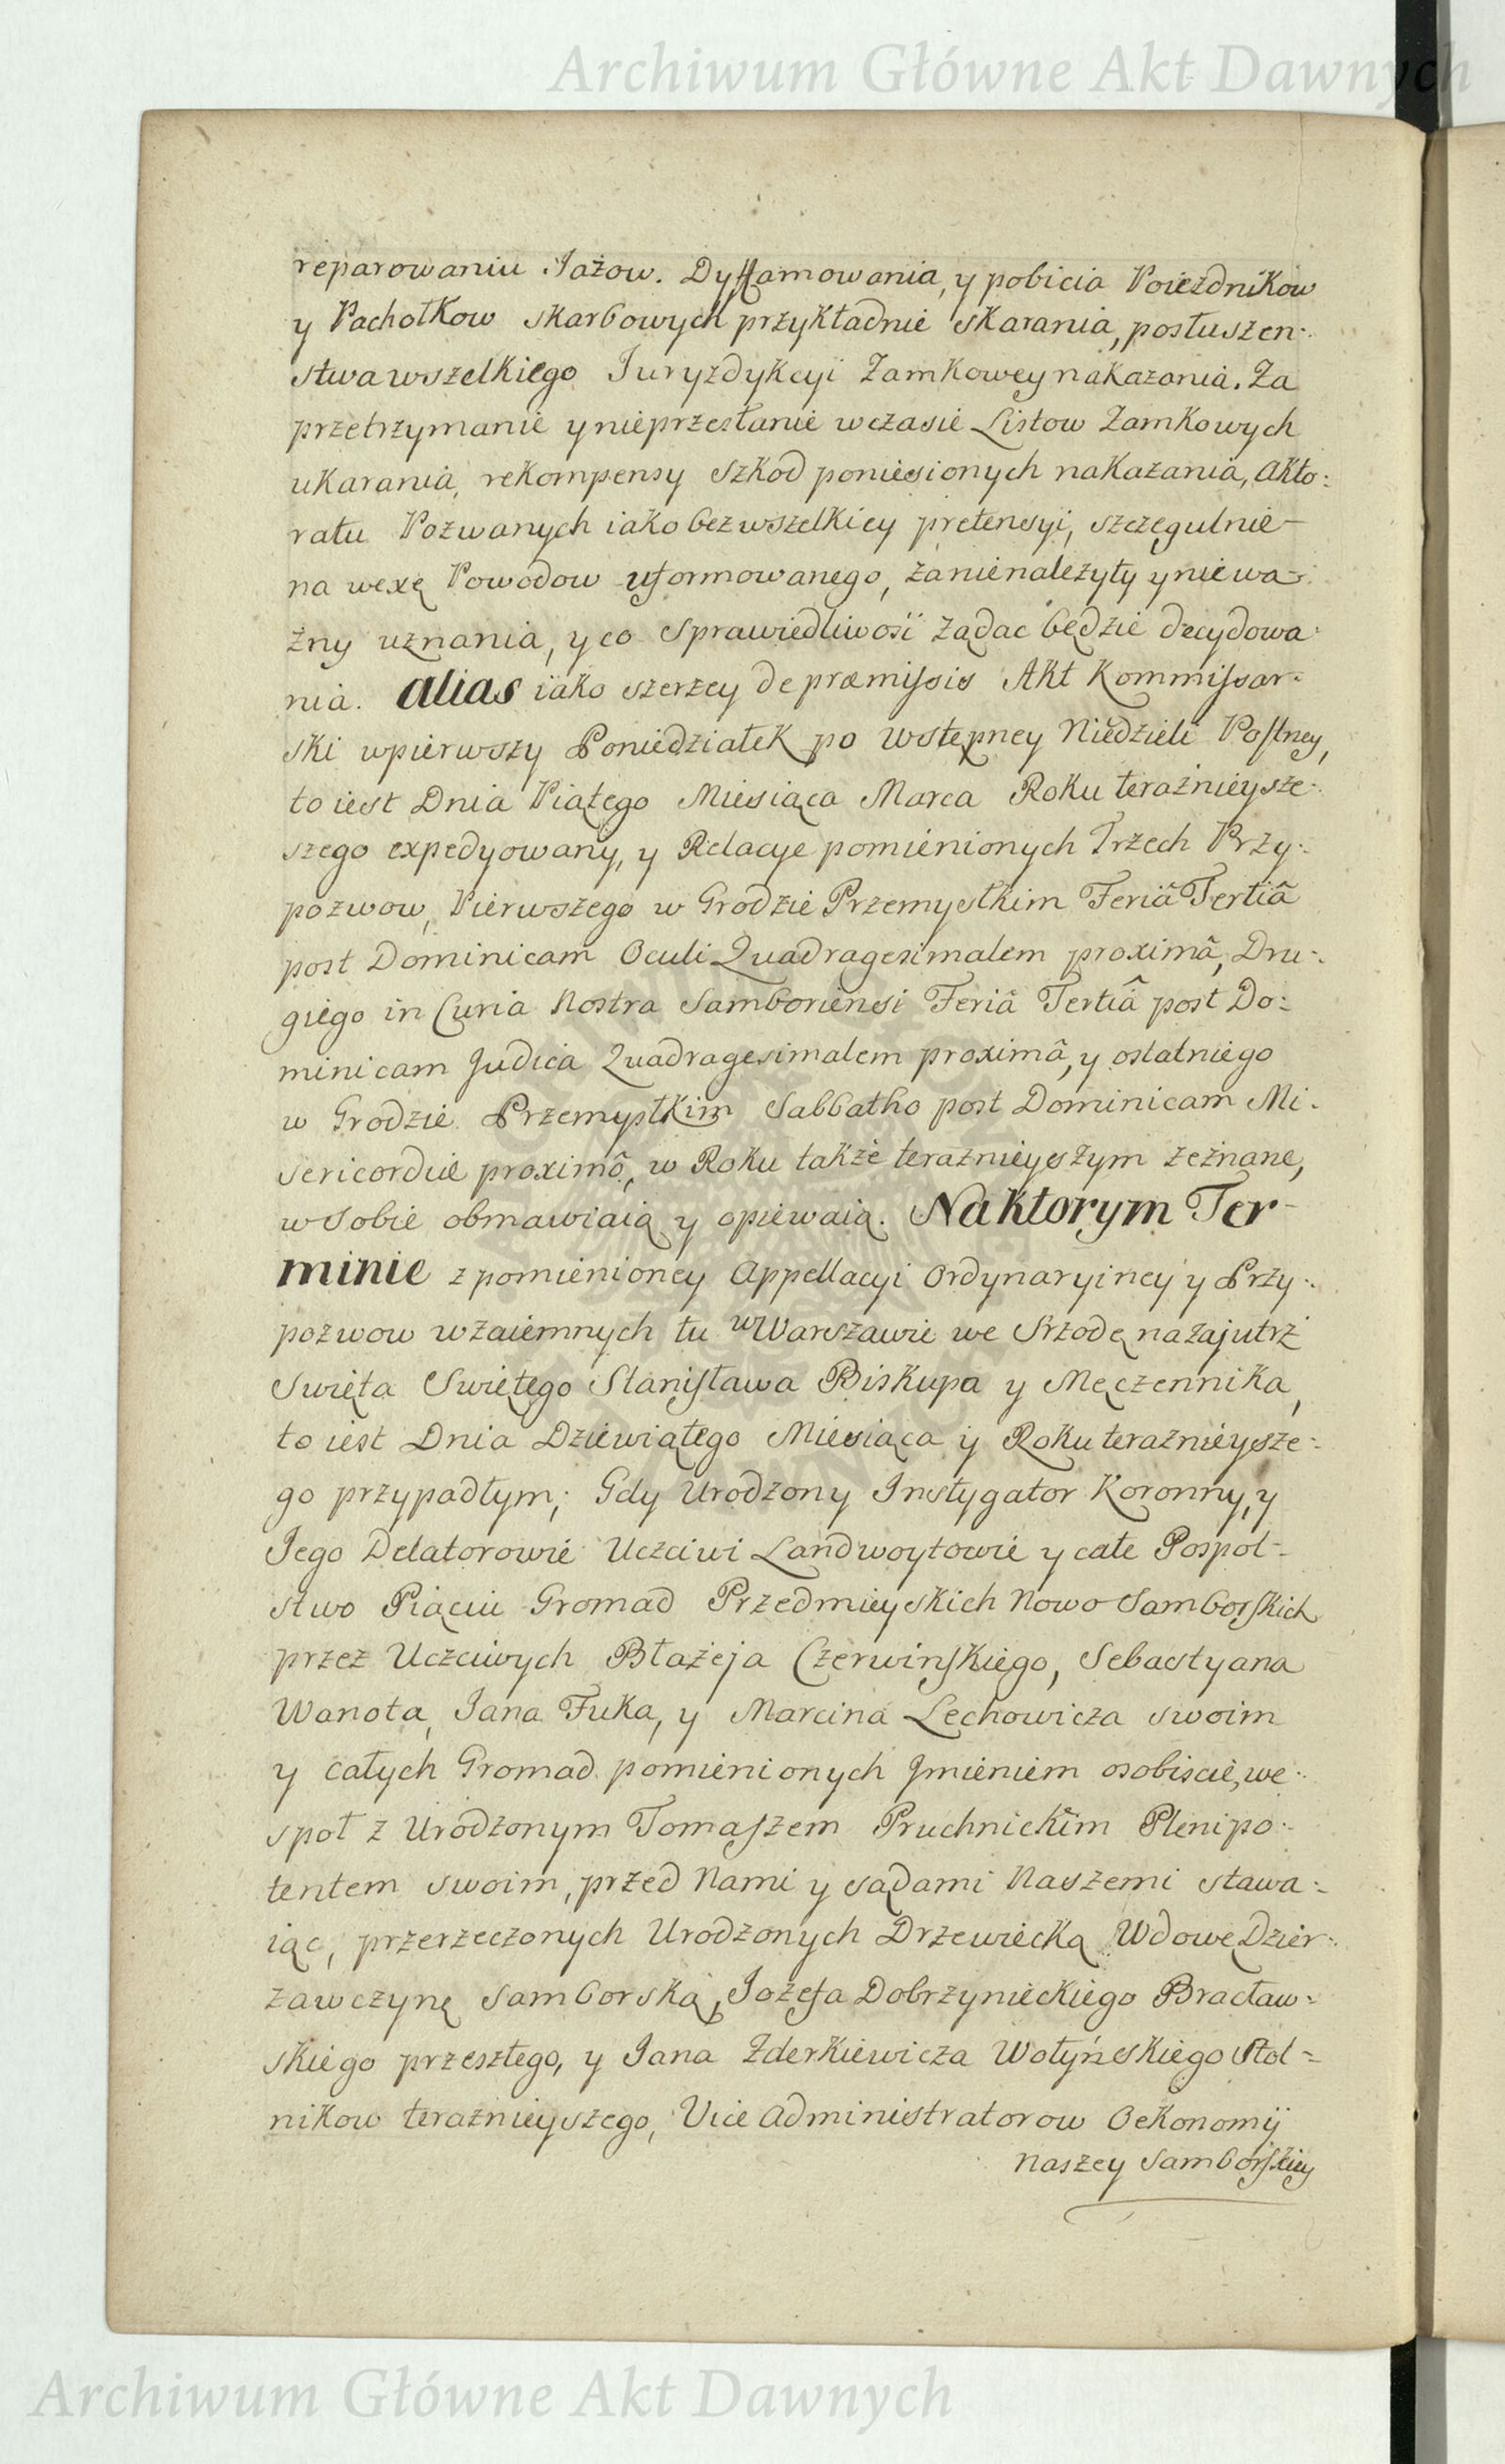 Archiwum Główne Akt Dawnych
reparowaniu Jażow. Dyffamowania, y pobicia Poiezdnikow
y Pachołkow skarbowych przykładnie skarania, posłuszen-
stwa wszelkiego Juryzdykcyi Zamkowey nakazania. Za
przetrzymanie y nieprzesłanie w czasie Listow Zamkowych
ukarania, rekompensy szkod poniesionych nakazania, Akto-
ratu Pozwanych iako bez wszelkiey pretensyi, szczegulnie
na wexę Powodow uformowanego, za nienależyty y niewa-
żny uznania, y co Sprawiedliwosci żądac będzie decydowa-
nia. Alias iako szerzey de præmissis Akt Kommissar-
ski w pierwszy Poniedziałek po Wstępney Niedzieli Postney,
to iest Dnia Piątego Miesiąca Marca Roku teraznieysze-
szego expedyowany, y Relacye pomienionych Trzech Przy-
pozwow, Pierwszego w Grodzie Przemyslkim Feriâ Tertiâ
post Dominicam Oculi Quadragesimalem proximâ, Dru-
giego in Curia Nostra Samboriensi Feriâ Tertiâ post Do-
minicam Judica Quadragesimalem proximâ, y ostatniego
w Grodzie Przemyslkim Sabbatho post Dominicam Mi-
sericordiæ proximô, w Roku także teraznieyszym zeznane,
w sobie obmawiaią y opiewaią. Na ktorym Ter-
minie z pomienioney Appellacyi Ordynaryiney y Przy-
pozwow wzaiemnych tu w Warszawie we Srzodę nazajutrz
Swięta Swiętego Stanisława Biskupa y Męczennika,
to iest Dnia Dziewiątego Miesiąca y Roku teraznieysze-
go przypadłym; Gdy Urodzony Instygator Koronny, y
Jego Delatorowie Uczciwi Landwoytowie y całe Pospol-
stwo Piąciu Gromad Przedmieyskich Nowo Samborskich
przez Uczciwych Błażeja Czerwinskiego, Sebastyana
Wanota, Jana Fuka, y Marcina Lechowicza swoim
y całych Gromad pomienionych Jmieniem osobiscie, we-
społ z Urodzonym Tomaszem Pruchnickim Plenipo-
tentem swoim, przed Nami y sądami Naszemi stawa-
iąc, przerzeczonych Urodzonych Drzewiecką Wdowę Dzier-
zawczynę Samborską, Jozefa Dobrzynieckiego Bracław-
skiego przeszłego, y Jana Zderkiewicza Wołyńskiego Stol-
nikow teraznieyszego, Vice Administratorow Oekonomij
naszey Samborskiey
Archiwum Główne Akt Dawnych